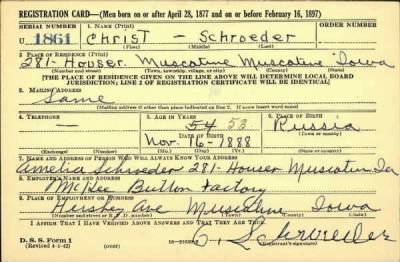 REGISTRATION CARD—(Men born on or after April 28, 1877 and on or before February 16, 1897)
SERIAL NUMBER 1. NAME (Print) ORDER NUMBER
1861 Christ - Schroeder
(First) (Middle) (Last)
2. PLACE OF RESIDENCE (Print)
281- Houser. Muscatine Muscatine Iowa
(Number and street) (Town, township, village, or city) (County) (State)
[THE PLACE OF RESIDENCE GIVEN ON THE LINE ABOVE WILL DETERMINE LOCAL BOARD
JURISDICTION; LINE 2 OF REGISTRATION CERTIFICATE WILL BE IDENTICAL]
3. MAILING ADDRESS
Same
[Mailing address if other than place indicated on line 2. If same insert word same]
4. TELEPHONE 5. AGE IN YEARS 6. PLACE OF BIRTH
- 54 53 Russia
DATE OF BIRTH (Town or county)
Nov. 16-1888
(Exchange) (Number) (Mo.) (Day) (Yr.) (State or country)
7. NAME AND ADDRESS OF PERSON WHO WILL ALWAYS KNOW YOUR ADDRESS
Amelia Schroeder 281- Houser Muscatine Ia
8. EMPLOYER'S NAME AND ADDRESS
McKee Button Factory
9. PLACE OF EMPLOYMENT OR BUSINESS
Hershey Ave Muscatine Iowa
(Number and street or R. F. D. number) (Town) (County) (State)
I AFFIRM THAT I HAVE VERIFIED ABOVE ANSWERS AND THAT THEY ARE TRUE.
D. S. S. Form 1
(Revised 4-1-42) (over) Schroeder
(Registrant's signature)